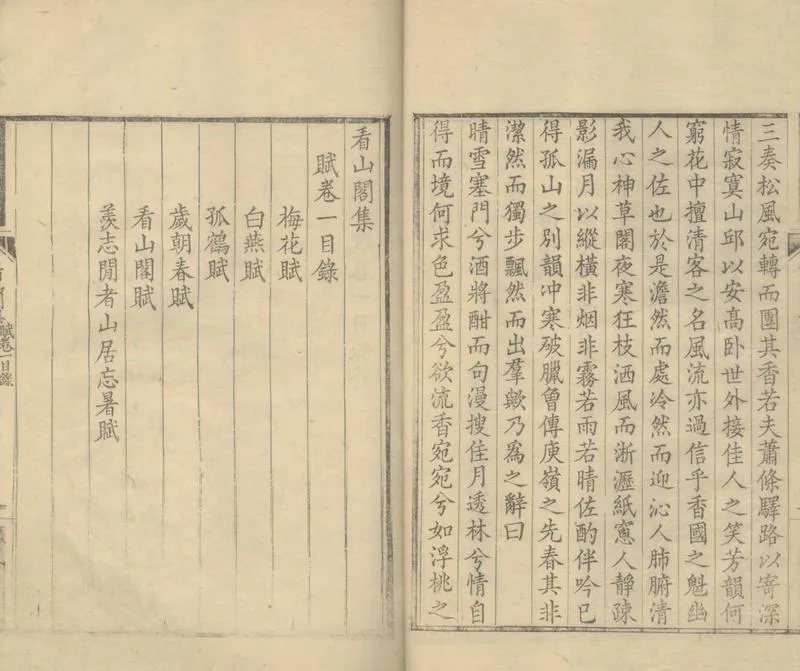 三奏松風宛轉而團其香若夫蕭條驛路以寄深
情寂寞山邱以安高卧世外接佳人之笑芳韻何
窮花中擅清客之名風流亦過信乎香國之魁幽
人之佐也於是澹然而處冷然而迎沁人肺腑清
我心神草閣夜寒狂枝洒風而淅瀝紙窻人靜疎
影漏月以縱橫非烟非霧若雨若晴佐酌伴吟已
得孤山之別韻冲寒破臘曾傳庾嶺之先春其非
潔然而獨步飄然而出羣歟乃爲之辭曰
晴雪塞門兮酒將酣而句漫搜佳月透林兮情自
得而境何求色盈盈兮欲流香宛宛兮如浮桃之
看山閣集
賦卷一目錄
梅花賦
白燕賦
孤鶴賦
歲朝春賦
看山閣賦
羨志閒者山居忘暑賦
賦卷一目錄